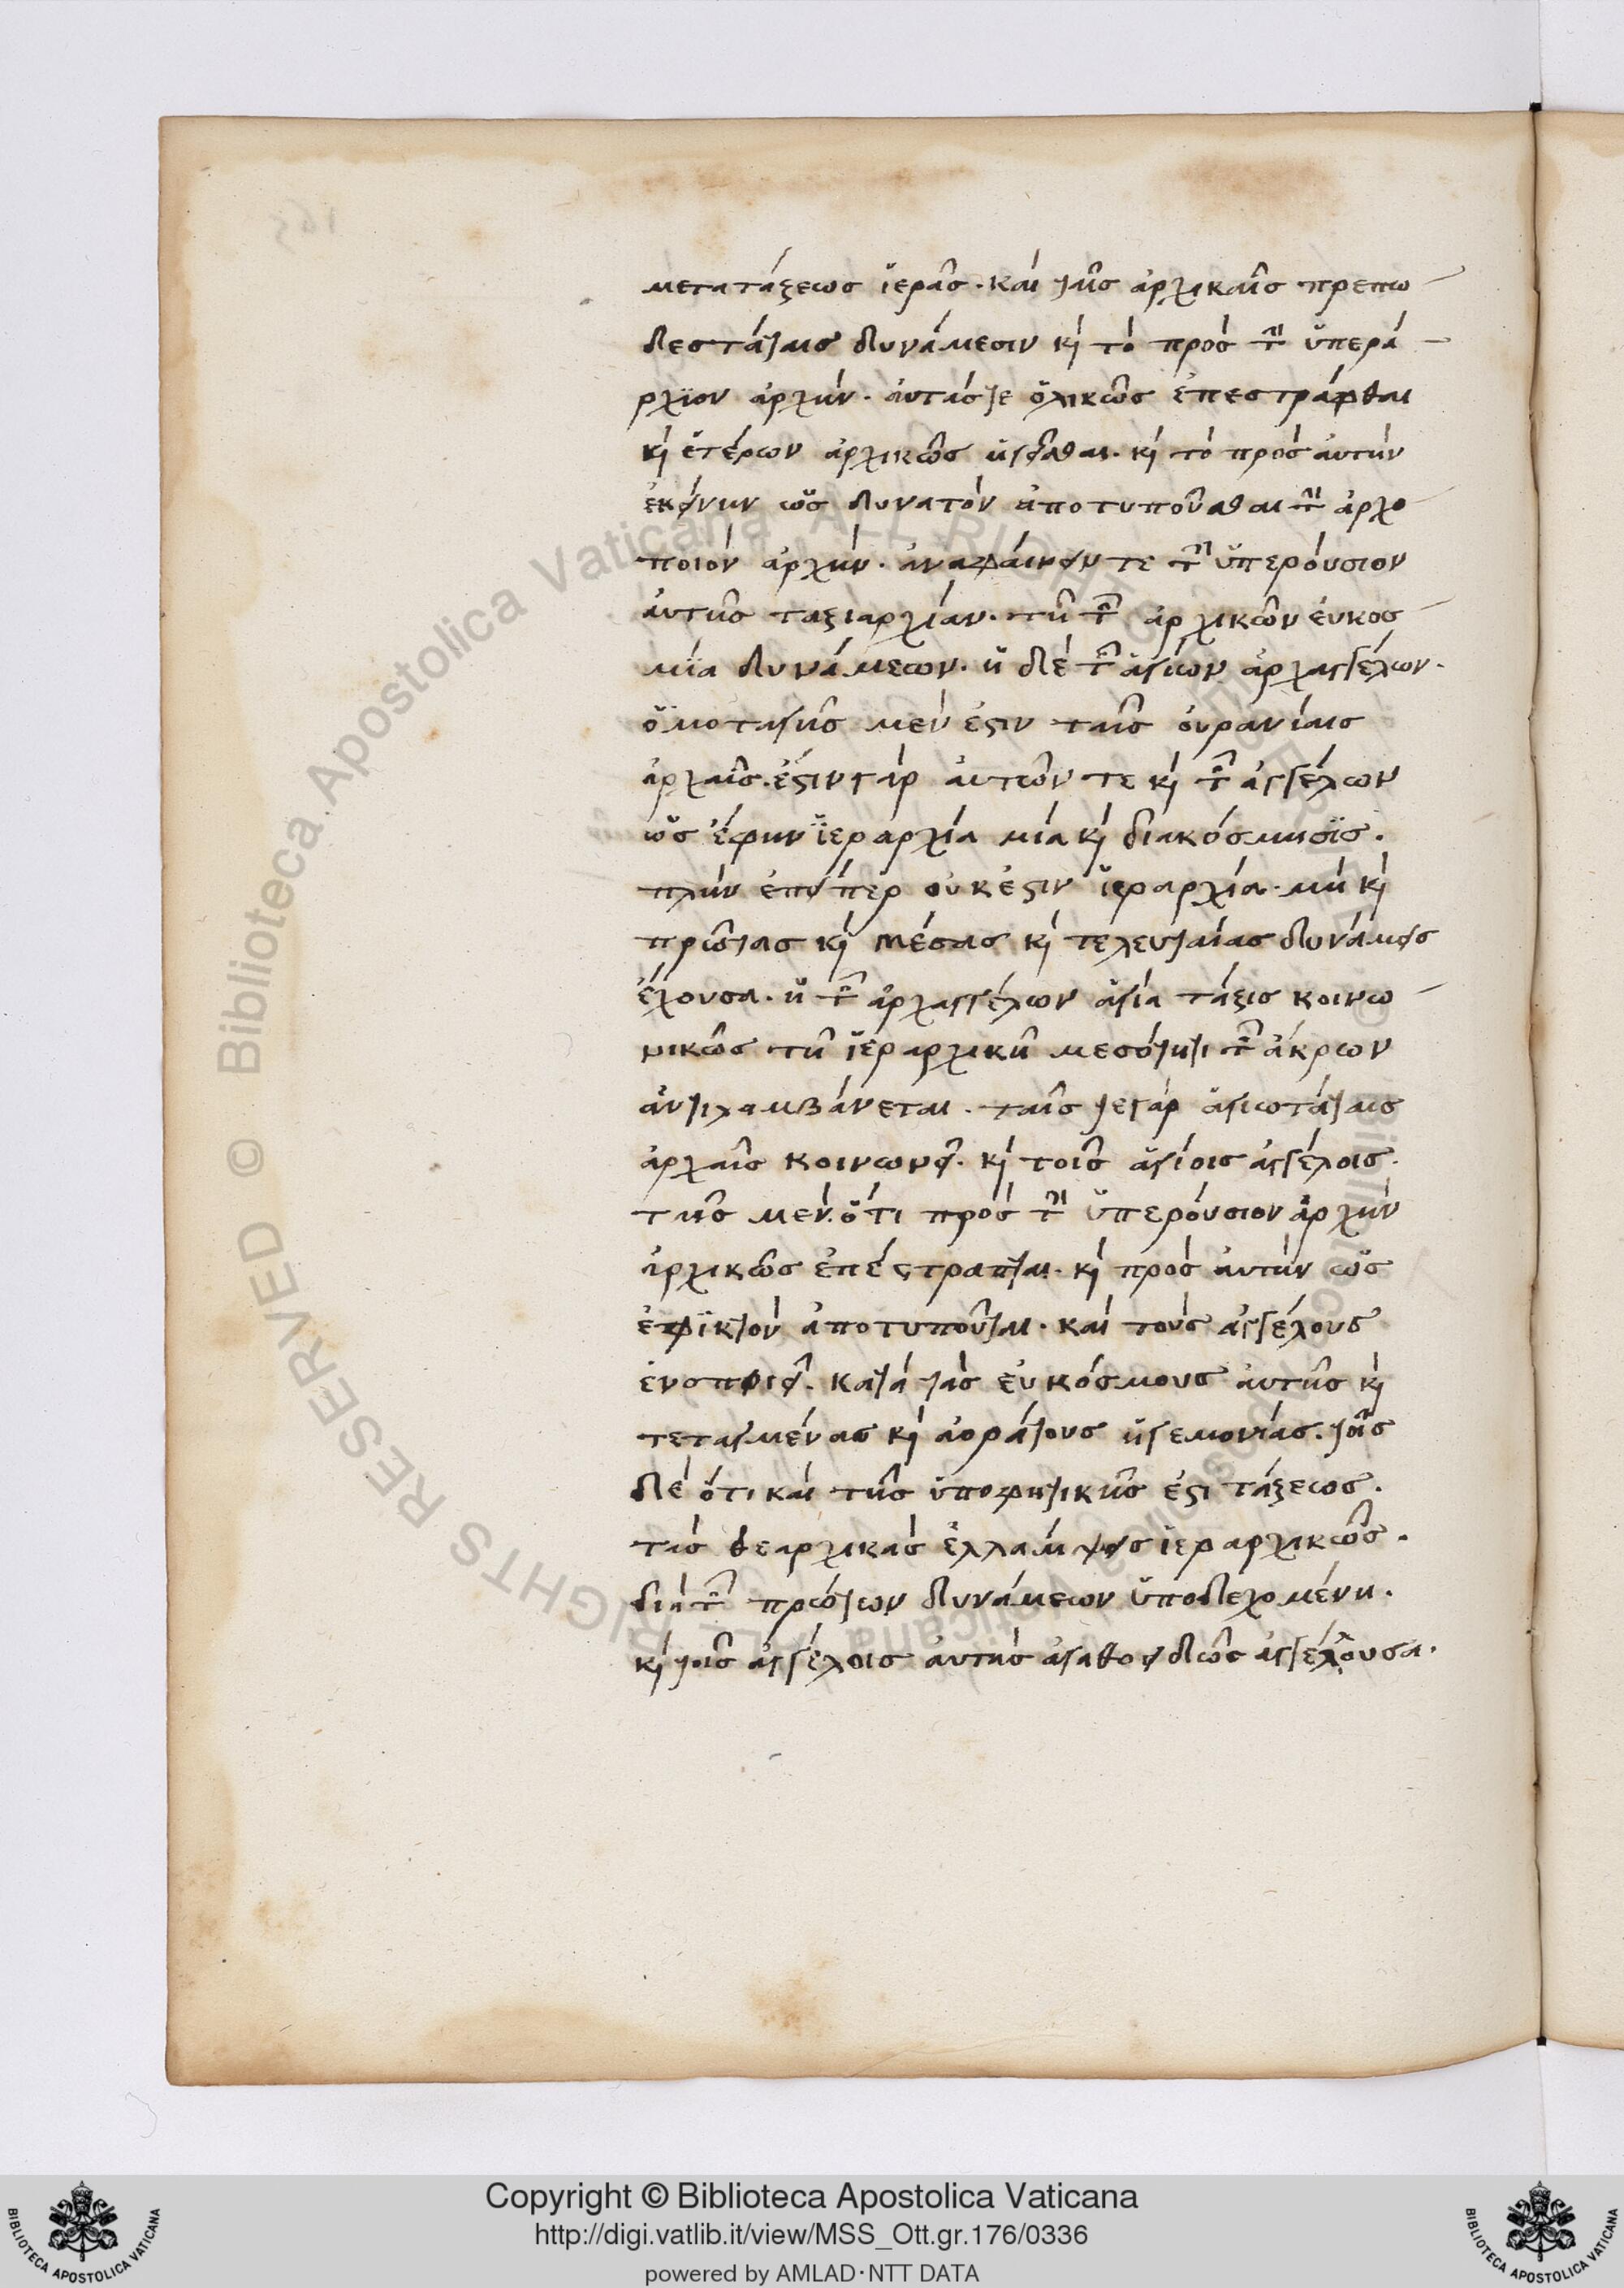 μετατάξεως ἱερᾶς· καὶ ταῖς ἀρχικαῖς πρεπω
δεστάταις δυνάμεσιν κὶ τὸ πρὸς τὴν ὑπερά
ρχϊον ἀρχὴν· ἀυτάστε ὁλικῶς ἐπεστράφθαι
κὶ ἑτέρων ἀρχικῶς ἡγεῖσθαι· κὶ τὸ πρὸς ἀυτὴν
ἐκείνην ὡς δυνατὸν ἀποτυποῦσθαι τὴν ἀρχο
ποιὸν ἀρχὴν· ἀναφάινειν τε τὴν ὑπερόυσιον
ἀυτῆς ταξιαρχίαν· τῆ τῶν ἀρχικῶν ἐυκοσ
μία δυνάμεων· ἡ δὲ τῶν ἁγίων ἀρχαγγέλων·
ὁμοταγὴς μέν ἐστιν ταῖς ὀυρανίαις
ἀρχαῖς· ἔστιν γὰρ ἀυτῶν τε κὶ τῶν ἀγγέλων
ὡς ἔφην ἱεραρχία μία κὶ διακόσμησϊς·
πλὴν ἐπείπερ ὀυκ ἔστιν ἱεραρχία· μὴ κὶ
πρώτας κὶ μέσας κὶ τελευταίας δυνάμεις
ἔχουσα· ἡ τῶν ἀρχαγγέλων ἁγία τάξις κοινω
νικῶς τῆ ἱεραρχικῆ μεσότητι τῶν ἄκρων
ἀντιλαμβάνεται· ταῖς τεγὰρ ἁγιωτάταις
ἀρχαῖς κοινωνεῖ· κὶ τοῖς ἁγίοις ἀγγέλοις·
τῆς μὲν· ὅτι πρὸς τὴν ὑπερόυσιον ἀρχὴν
ἀρχικῶς ἐπέστραπται· κὶ πρὸς ἀυτὴν ὡς
ἐφϊκτὸν ἀποτυποῦται· καὶ τοὺς ἀγγέλους
ἑνοποιεῖ· κατὰ τὰς ἐυκόσμους ἀυτῆς κὶ
τεταγμένας κὶ ἀοράτους ἡγεμονίας· τοῖς
δὲ ὅτι καὶ τῆς ὑποφητικῆς ἐστι τάξεως·
τὰς θεαρχικὰς ἐλλάμψεις ἱεραρχικῶς·
διὰ τῶν πρώτων δυνάμεων ὑποδεχομένη·
κὶ τοῖς ἀγγέλοις ἀυτὰς ἀγαθοειδῶς ἀγγέλλουσα·
Copyright © Biblioteca Apostolica Vaticana
http://digi.vatlib.it/view/MSS_Ott.gr.176/0336
powered by AMLAD·NTT DATA